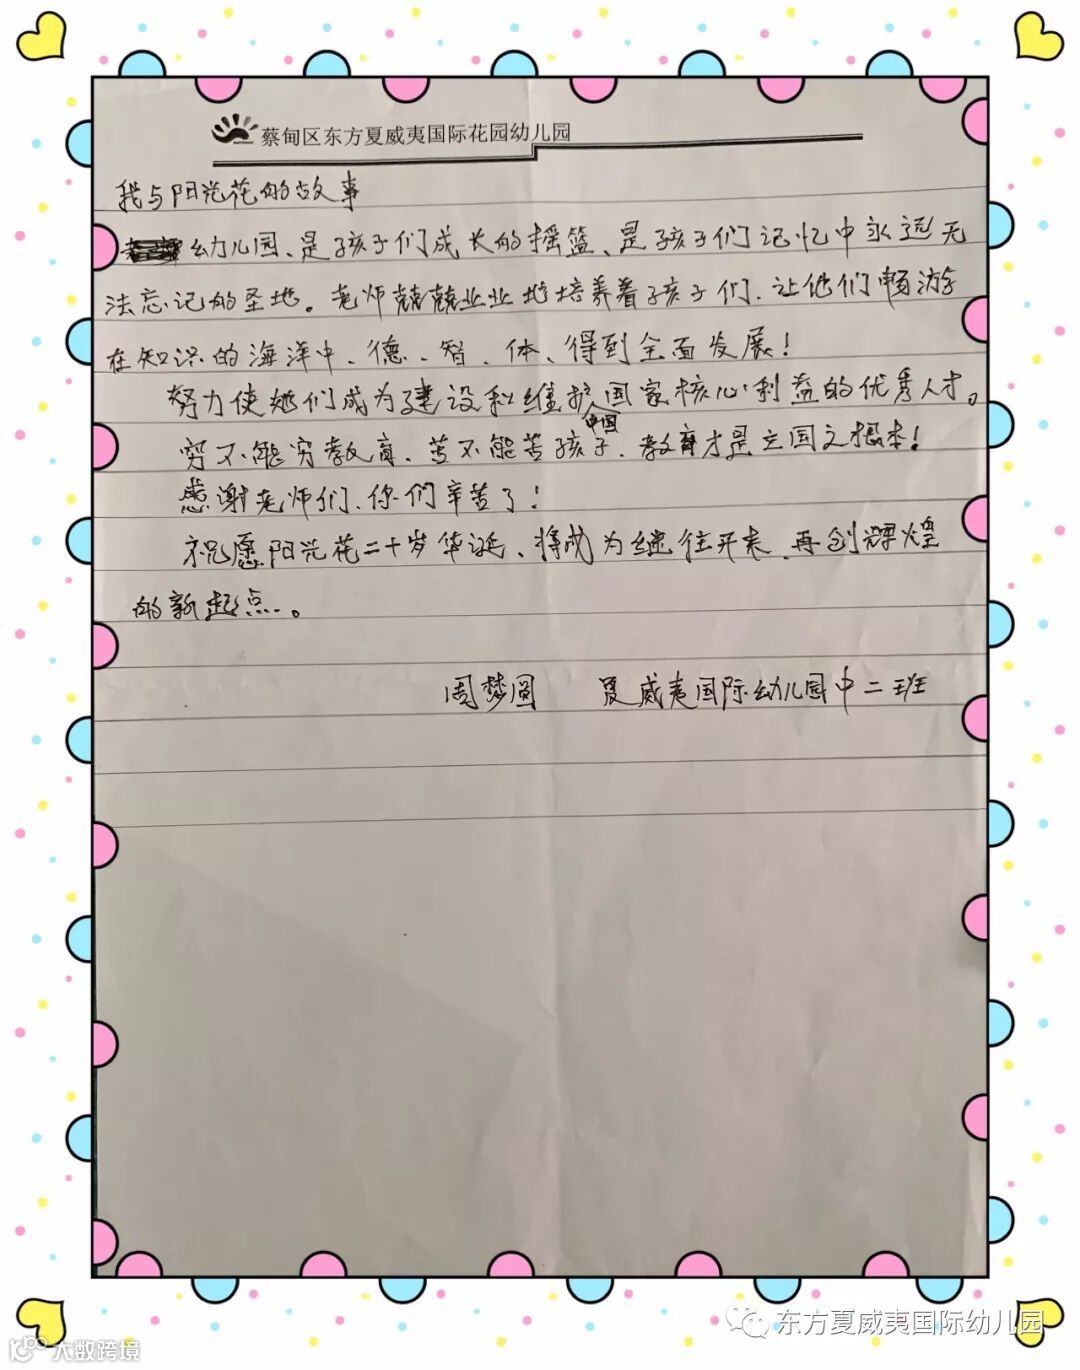 蔡甸区东方夏威夷国际花园幼儿园
我与阳光花的故事
幼儿园、是孩子们成长的摇篮、是孩子们记忆中永远无
法忘记的圣地。老师兢兢业业地培养着孩子们、让他们畅游
在知识的海洋中、德、智、体、得到全面发展！
努力使她们成为建设和维护中国国家核心利益的优秀人才。
穷不能穷教育、苦不能苦孩子、教育才是立国之根本！
感谢老师们、你们辛苦了！
祝愿阳光花二十岁华诞、将成为继往开来、再创辉煌
的新起点。
周梦圆 夏威夷国际幼儿园中二班
东方夏威夷国际幼儿园
大数跨境